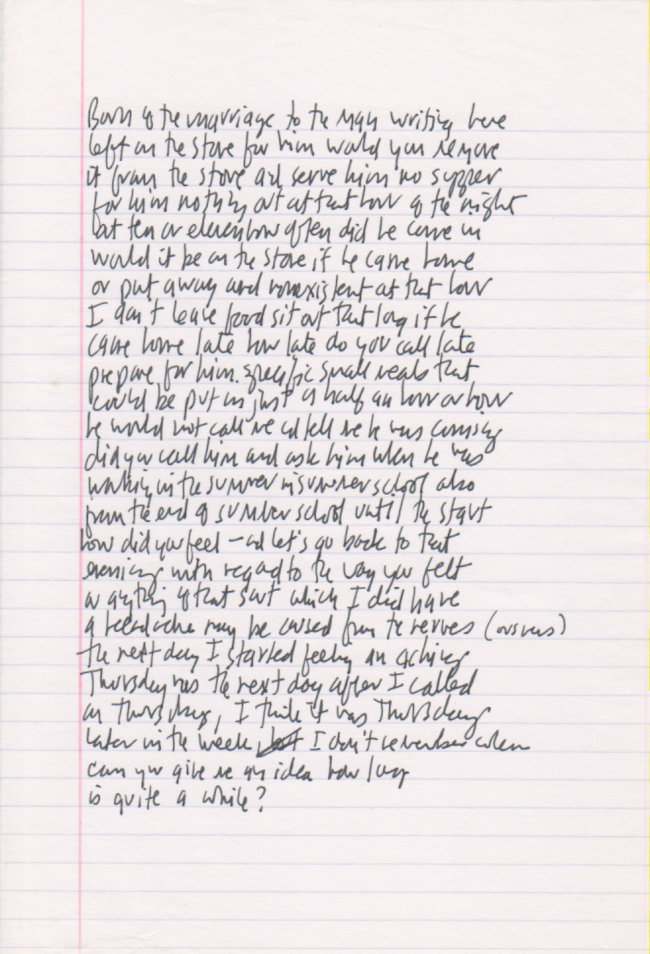 Born of the marriage to the man writing here
left on the stove for him would you remove
it from the stove and serve him no supper
for him nothing out at that hour of the night
at ten or eleven how often did he come in
would it be on the stove if he came home
or put away and nonexistent at that hour
I don't leave food sit out that long if he
came home late how late do you call late
prepare for him specific small meals that
could be put in just a half an hour or hour
he would not call me and tell me he was coming
did you call him and ask him when he was
working in the summer in summer school also
from the end of summer school until the start
how did you feel – and let's go back to that
evening with regard to the way you felt
or anything of that sort which I did have
a headache may be caused from the nerves
the next day I started feeling an aching
Thursday was the next day after I called
on Thursday, I think it was Thursday
later in the week, I don't remember when
can you give me an idea how long
is quite a while?